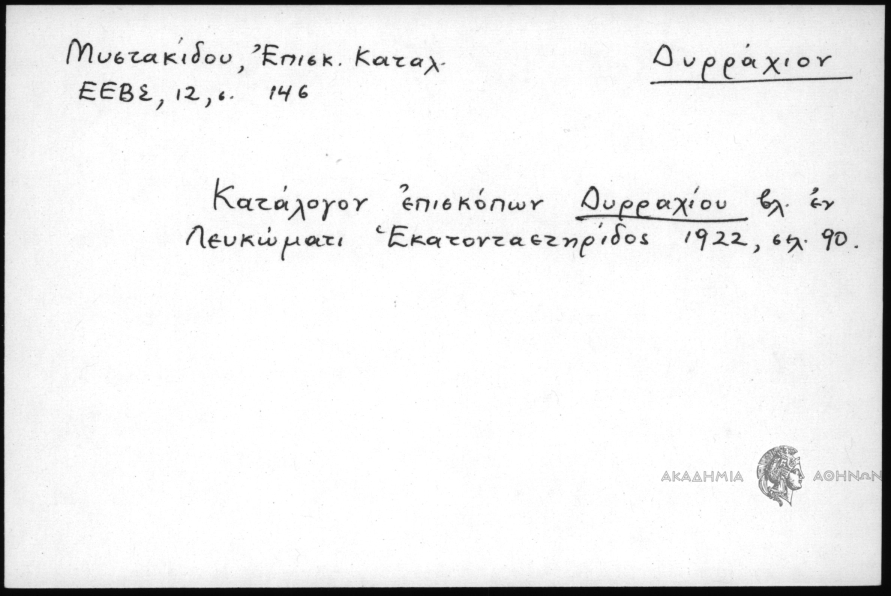 Μυστακίδου, Ἐπισκ. Καταλ.
Δυρράχιον
ΕΕΒΣ, 12, σ. 146
Κατάλογον ἐπισκόπων Δυρραχίου βλ. ἐν
Λευκώματι Ἑκατονταετηρίδος 1922, σελ. 90.
ΑΚΑΔΗΜΙΑ ΑΘΗΝΩΝ